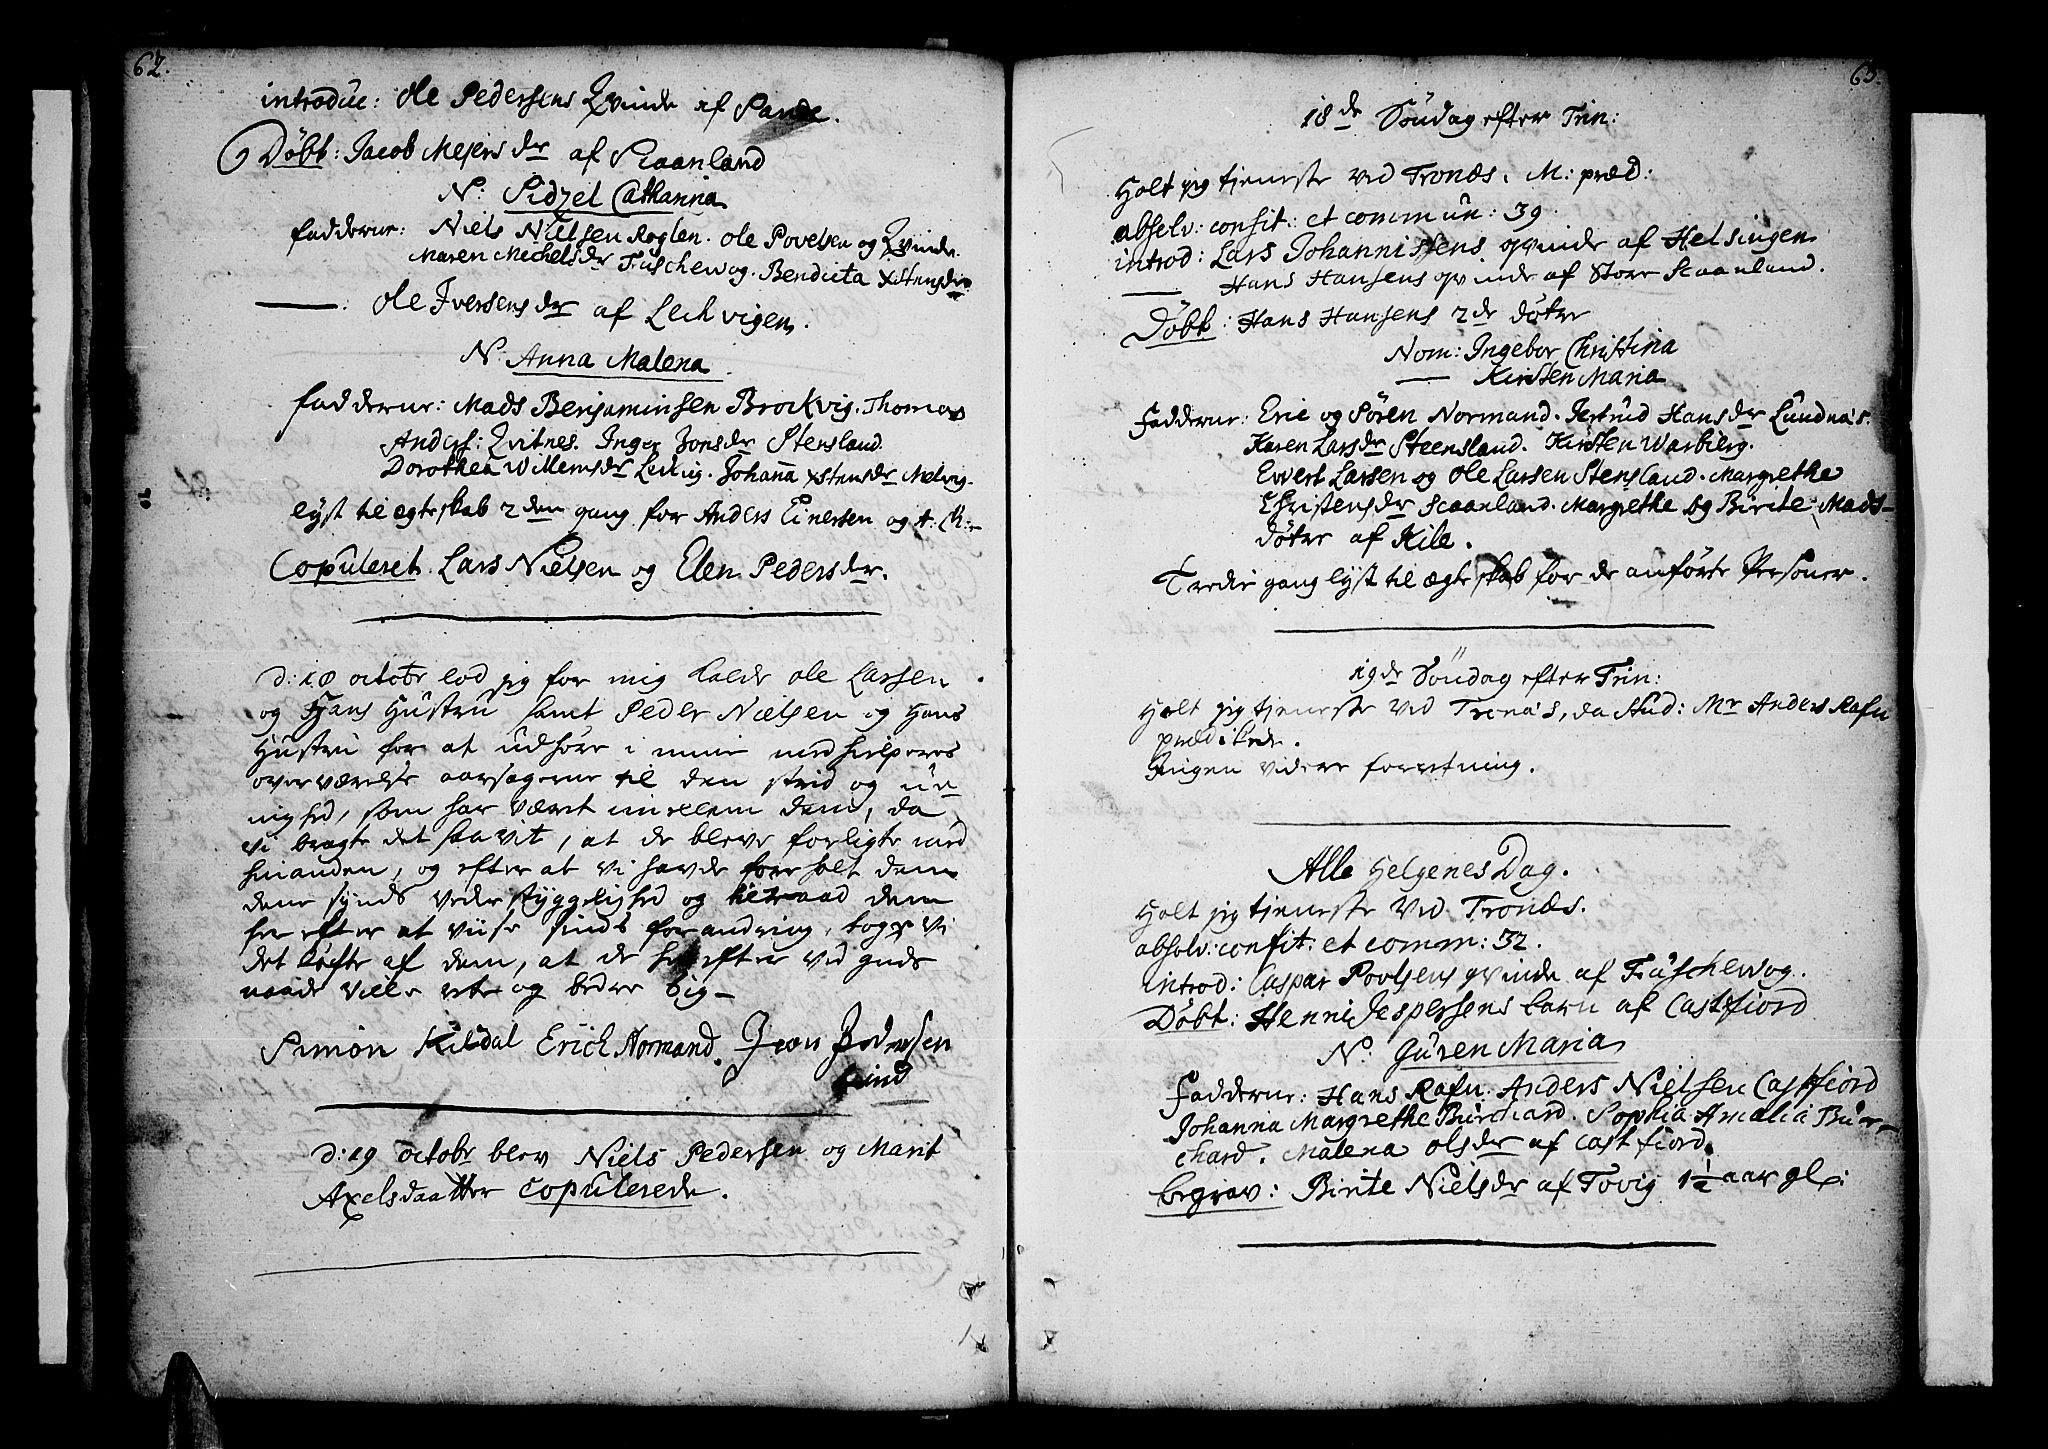 62.
introduc: Ole Pedersens Qvinde af Sande.
Døbt: Jacob Mejers dr af Scaanland
N: Sidzel Catharina
fadderne: Niels Nielsen Roglen. Ole Povelsen og Qvinde.
Maren Michelsdr Fuschewog. Bendicta Xstensdr
—. Ole Iversens dr af Lechvigen.
N. Anna Malena.
fadderne: Mads Benjaminsen Brockvig. Thomas
Anders: Qvitnes. Inger Jonsdr Stensland.
Dorothea Willemsdr Lechvig. Johanna Xstensdr Melvig.
lyst til egteskab 2den gang for Anders Einersen og A: Ch:
Copuleret. Lars Nielsen og Elen Pedersdr.
d: 18 octobr lod jeg for mig kalde Ole Larsen
og Hans Hustru samt Peder Nielsen og Hans
Hustru for at udhöre i mine medhielperes
overværelse aarsagerne til den strid og uee
nighed, som har været imellem dem, da
vi bragte det saavit, at de bleve forligte med
hinanden, og efter at vi havde foreholt dem
denne synds vederstyggelighed og tilraad dem
her efter at viise sinds forandring, toge vi
det løfte af dem, at de herefter ved guds
naade ville rette og bedre sig—
Simon Kildal Erich Normand. Jean Pedersen
Lind
d: 19 octobr blev Niels Pedersen og Marit
Axelsdaatter copulerede.
63.
18de Söndag efter Trin:
Holt jeg tjeneste ved Tronæs. M: præd:
absolv: confit: et commun: 39.
introd: Lars Johannissens qvinde af Helsingen
— Hans Hansens qvinde af Store Scaanland.
Döbt: Hans Hansens 2de dötre
Nom: Ingebor Christina
— Kirsten Maria
Fadderne: Eric og Sören Normand. Jertrud Hansdr Lundnæs.
Karen Larsdr Steensland. Kirsten Warberg.
Evert Larsen og Ole Larsen Stensland. Margrethe
Christensdr Scaanland. Margrethe og Birite Mads-
döttre af Kile.
Tredie gang lyst til ægteskab for de anförte Personer.
19de Söndag efter Trin:
Holt jeg tjeneste ved Tronæs, da Stud: Mr Anders Rafn
prædikede.
Ingen videre forretning.
Alle Helgenes Dag.
Holt jeg tjeneste ved Tronæs.
absolv: confit: et comm: 32.
introd: Caspar Povlsens qvinde af Fuschewog.
Döbt: Henni Jespersens barn af Castfiord
N: Guren Maria
Fadderne: Hans Rafn. Anders Nielsen Castfiord
Johanna Margrethe Burchard. Sophia Amalia Bur-
chard. Malena Olsdr af Castfiord.
begrav: Birite Nielsdr af Tovig 1½ aar gl: